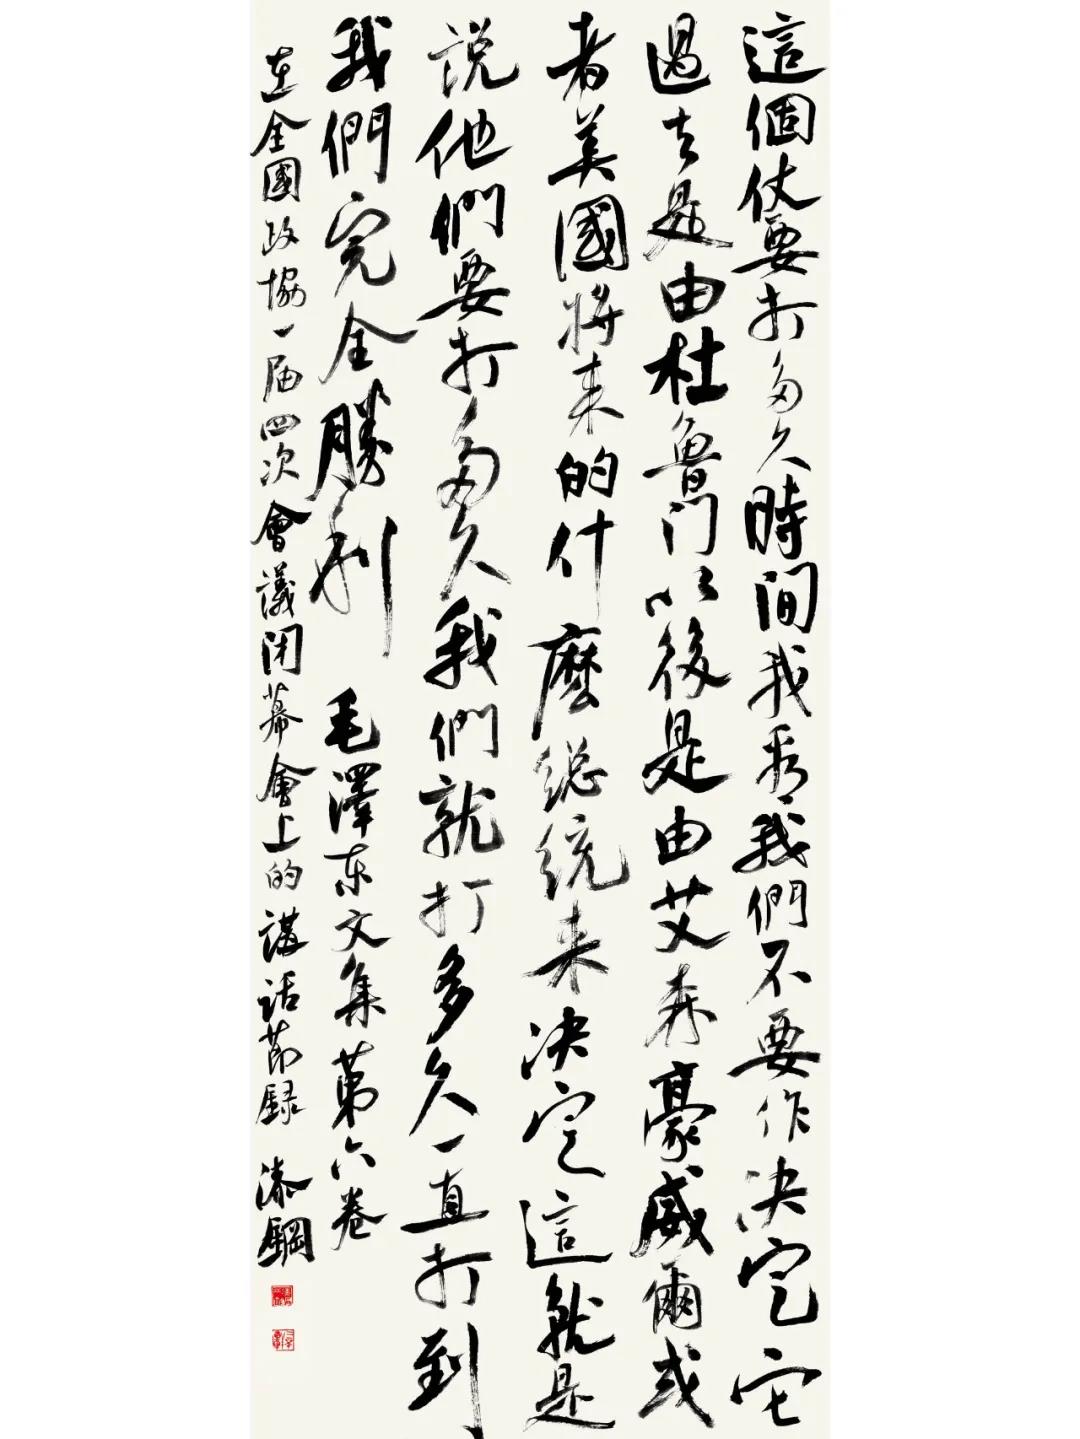 這個仗要打多久時间我看我們不要作决定它
過去是由杜魯门以後是由艾森豪威爾或
者美國将来的什麽總统来决定這就是
説他們要打多久我們就打多久一直打到
我們完全勝利 毛澤东文集第六卷
在全國政協一届四次會議闭幕會上的講話節録